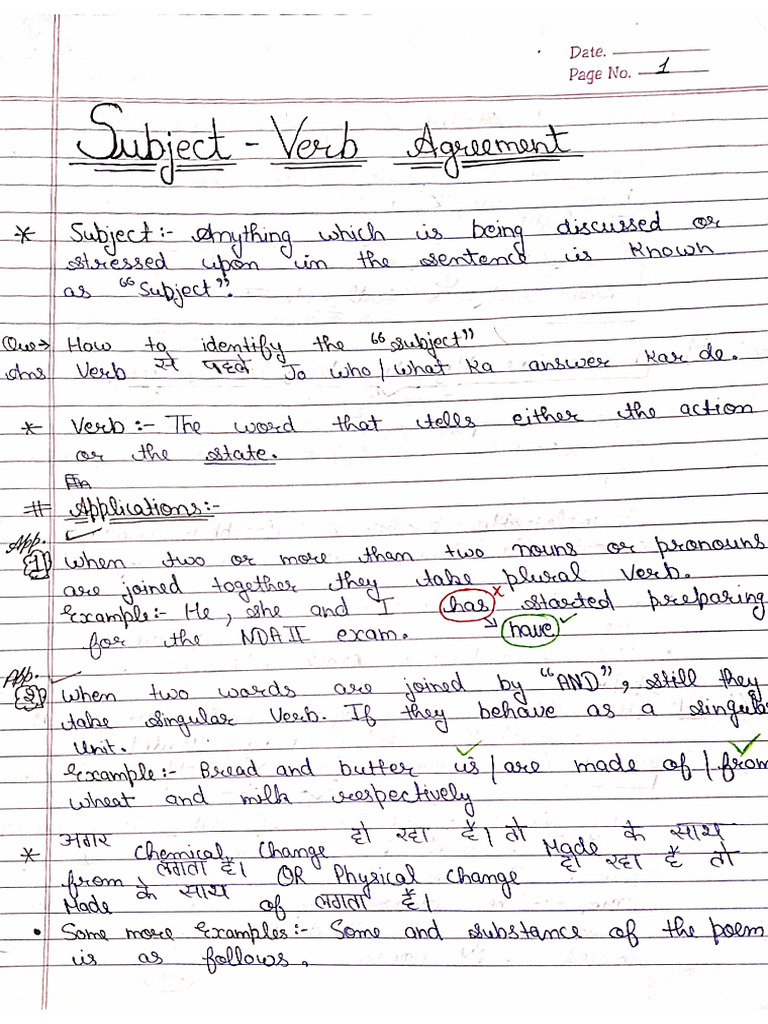 Date.
Page No. 1
Subject - Verb Agreement
* Subject :- Anything which is being discussed or
stressed upon in the sentence is Known
as "Subject".
Que→ How to identify the "subject"
Ans Verb से पहले Jo who/what Ka answer Kar de.
* Verb :- The word that tells either the action
or the state.
# Applications :-
App. 1 When two or more than two nouns or pronouns
are joined together they take plural verb.
Example :- He, she and I has x started preparing
for the NDA II exam. → have ✓
App. 2 When two words are joined by "AND", still they
take singular Verb. If they behave as a singular
Unit.
Example :- Bread and butter is/are made of/from
wheat and milk respectively
* अगर Chemical Change हो रहा है। तो Made के साथ
from लगता है। OR Physical Change हो रहा है तो
Made के साथ of लगता है।
• Some more Examples :- Some and substance of the poem
is as follows.